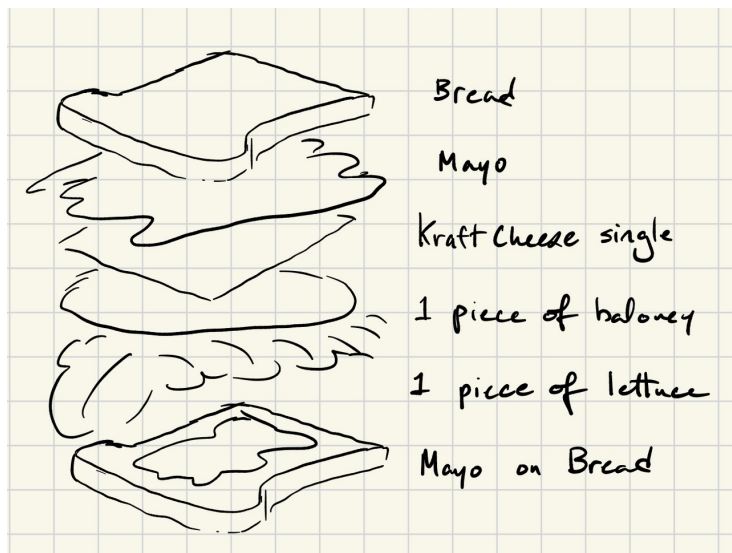 Bread
Mayo
Kraft Cheese single
1 piece of baloney
1 piece of lettuce
Mayo on Bread